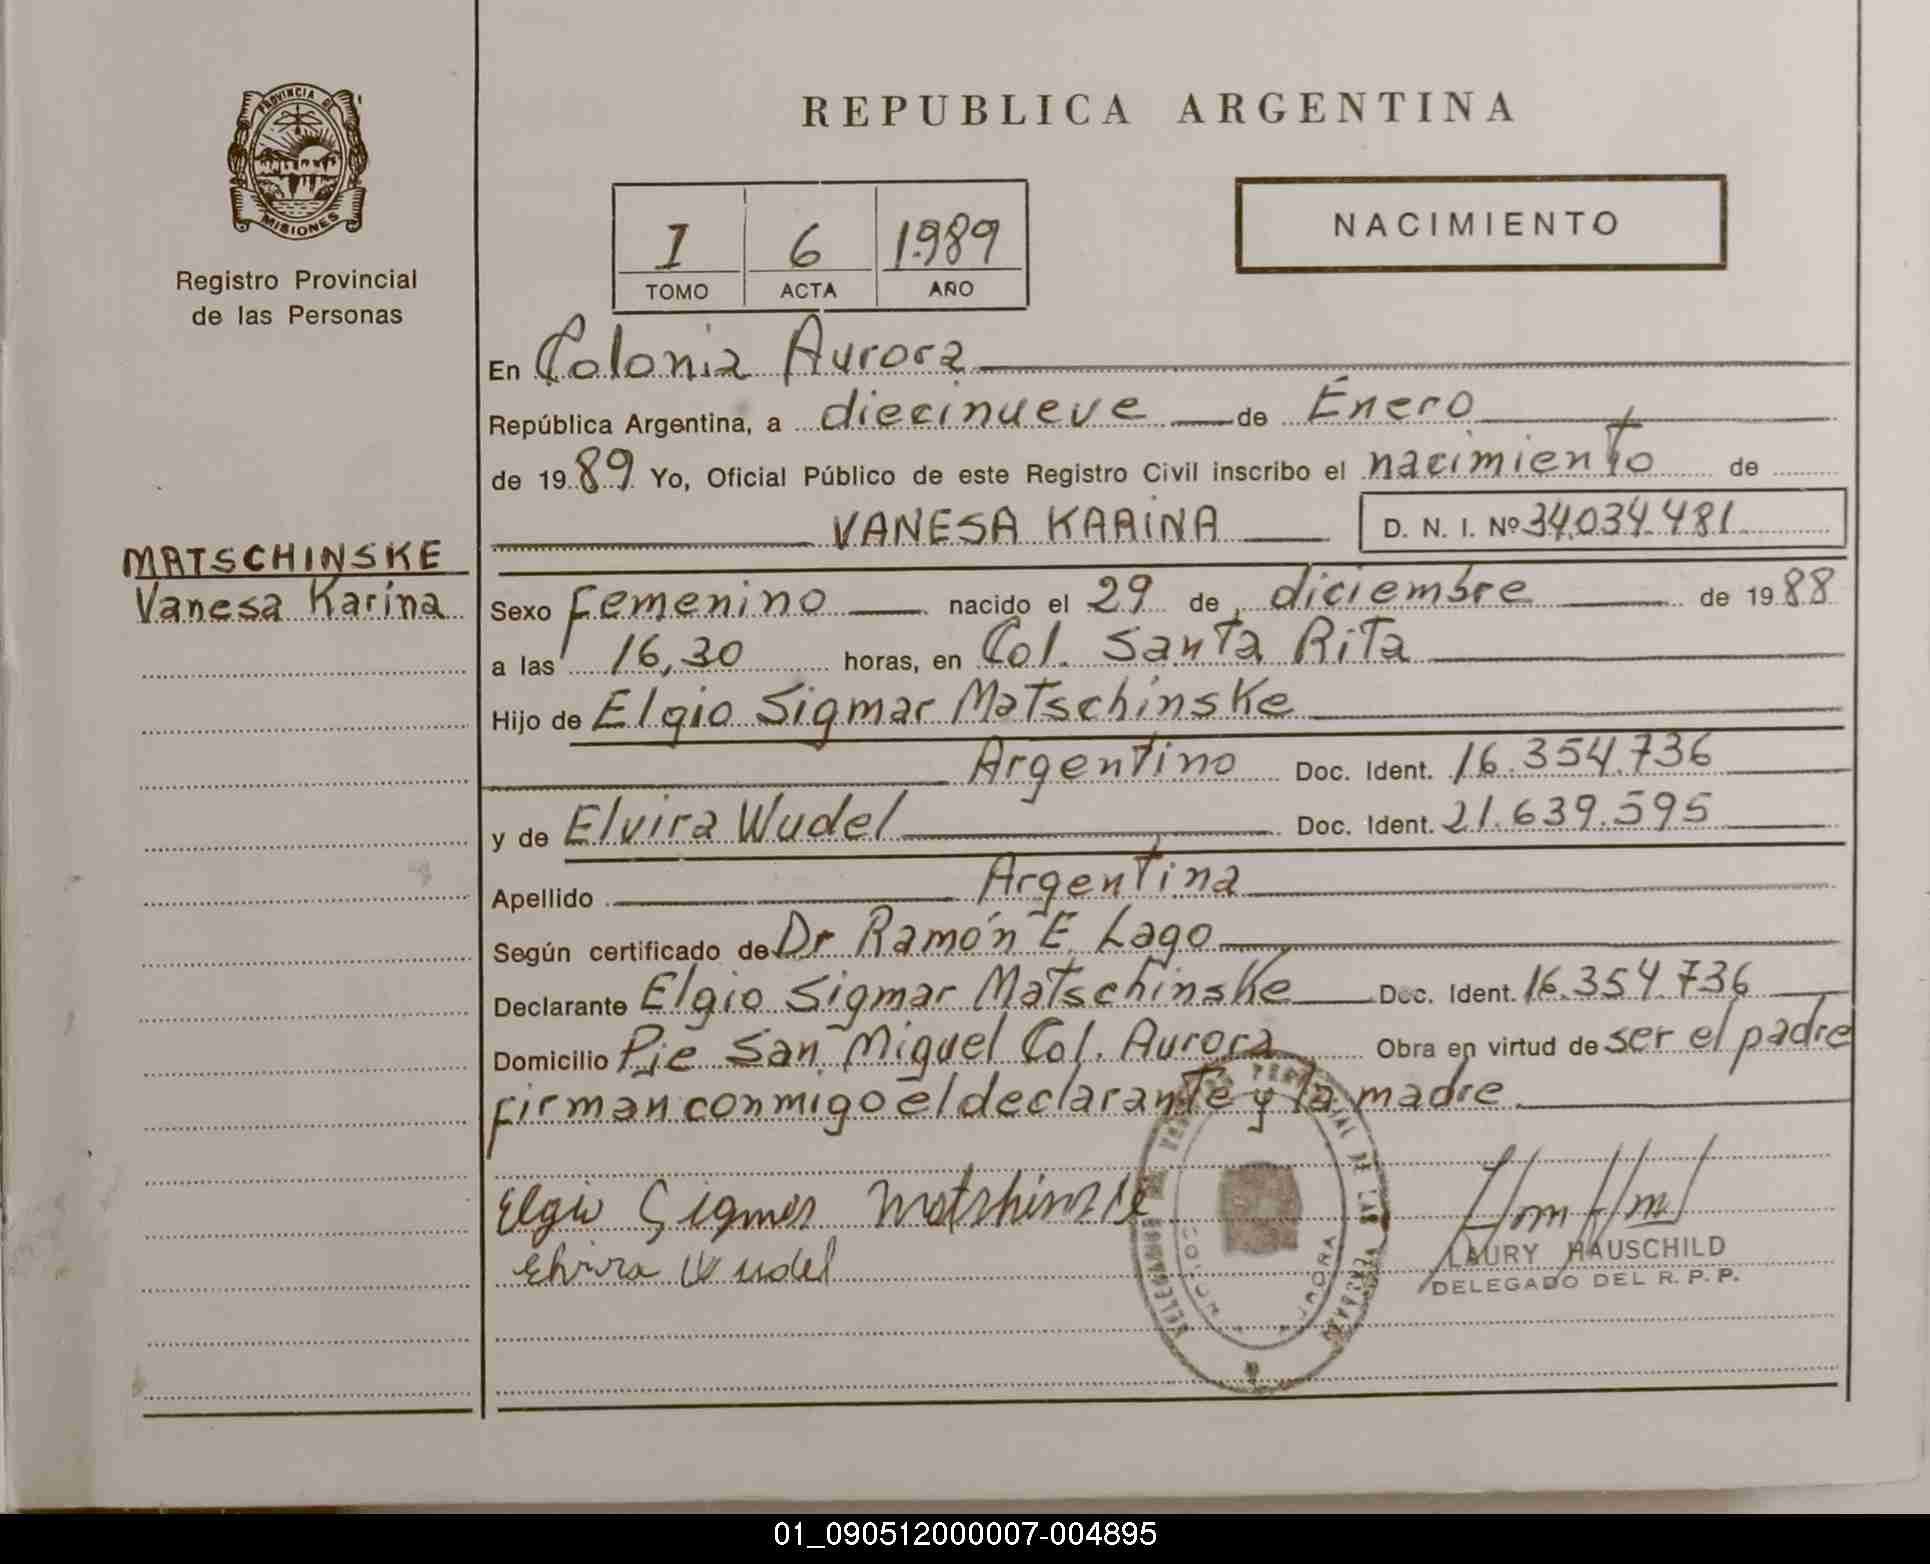 PROVINCIA DE
MISIONES
Registro Provincial
de las Personas
MATSCHINSKE
Vanesa Karina
REPUBLICA ARGENTINA
I 6 1.989
TOMO ACTA AÑO
NACIMIENTO
En Colonia Aurora
República Argentina, a diecinueve de Enero
de 1989 Yo, Oficial Público de este Registro Civil inscribo el nacimiento de
VANESA KARINA D. N. I. Nº 34.034.481
Sexo Femenino nacido el 29 de diciembre de 1988
a las 16,30 horas, en Col. Santa Rita
Hijo de Elgio Sigmar Matschinske
Argentino Doc. Ident. 16.354.736
y de Elvira Wudel Doc. Ident. 21.639.595
Apellido Argentina
Según certificado de Dr Ramón E. Lago
Declarante Elgio Sigmar Matschinske Doc. Ident. 16.354.736
Domicilio Pje San Miguel Col. Aurora Obra en virtud de ser el padre
firman conmigo el declarante y la madre
Elgio Sigmar Matshinske
Elvira Wudel
LAURY HAUSCHILD
DELEGADO DEL R. P. P.
01_090512000007-004895